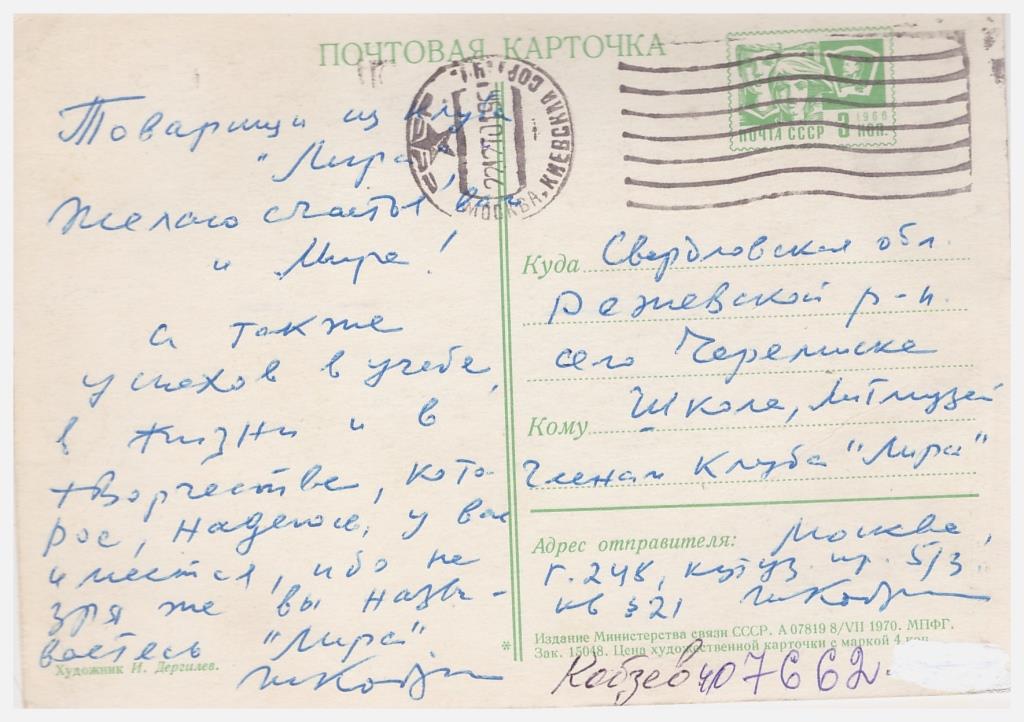 ПОЧТОВАЯ КАРТОЧКА
Товарищи из клуба
"Лира",
желаю счастья вам
и Мира!
а также
успехов в учебе,
в жизни и в
творчестве, кото-
рое, надеюсь, у вас
имеется, ибо не
зря же вы назы-
ваетесь "Лира"
Художник И. Дергилев.
СССР МОСКВА, КИЕВСКАЯ СОРТ
22 12 70
1966
ПОЧТА СССР 3 КОП.
Куда Свердловская обл.
Режевской р-н.
село Черемисска
Школа, Литмузей
Кому
Членам Клуба "Лира"
Адрес отправителя: Москва,
Г-248, кутуз. пр. 5/3
кв 321 ИКобзев
Издание Министерства связи СССР. А 07819 8/VII 1970. МПФГ.
Зак. 15048. Цена художественной карточки с маркой 4 коп.
ИКобзев
Кобзев 407662